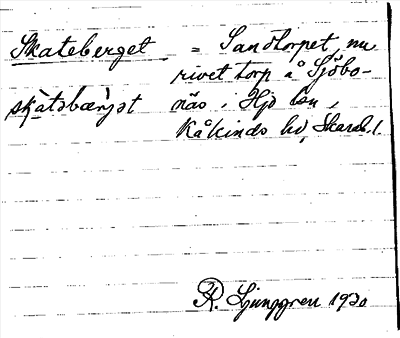 Skateberget = Sandtorpet, nu
rivet torp å Sjöbo-
skàtsbærjət näs i Hjo lsn,
Kåkinds hd, Skarab. l.
K. Ljunggren 1920